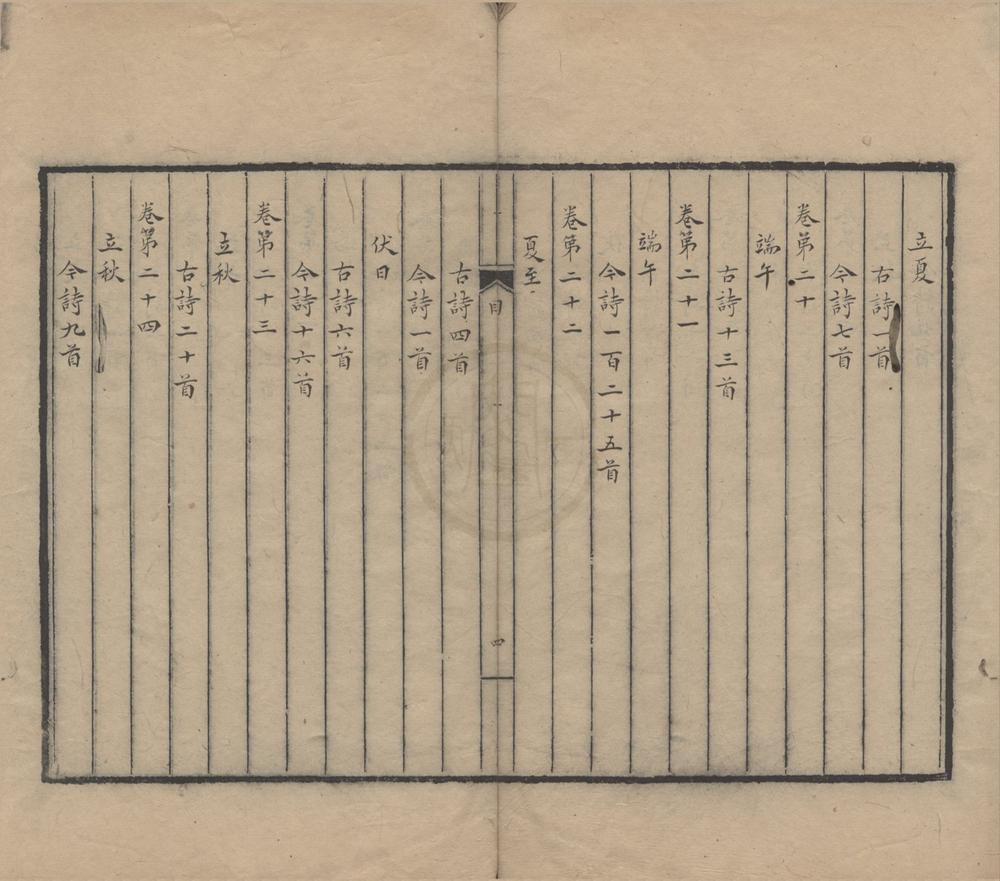 立夏
古詩一首
今詩七首
卷第二十
端午
古詩十三首
卷第二十一
端午
今詩一百二十五首
卷第二十二
夏至
目
四
古詩四首
今詩一首
伏日
古詩六首
今詩十六首
卷第二十三
立秋
古詩二十首
卷第二十四
立秋
今詩九首